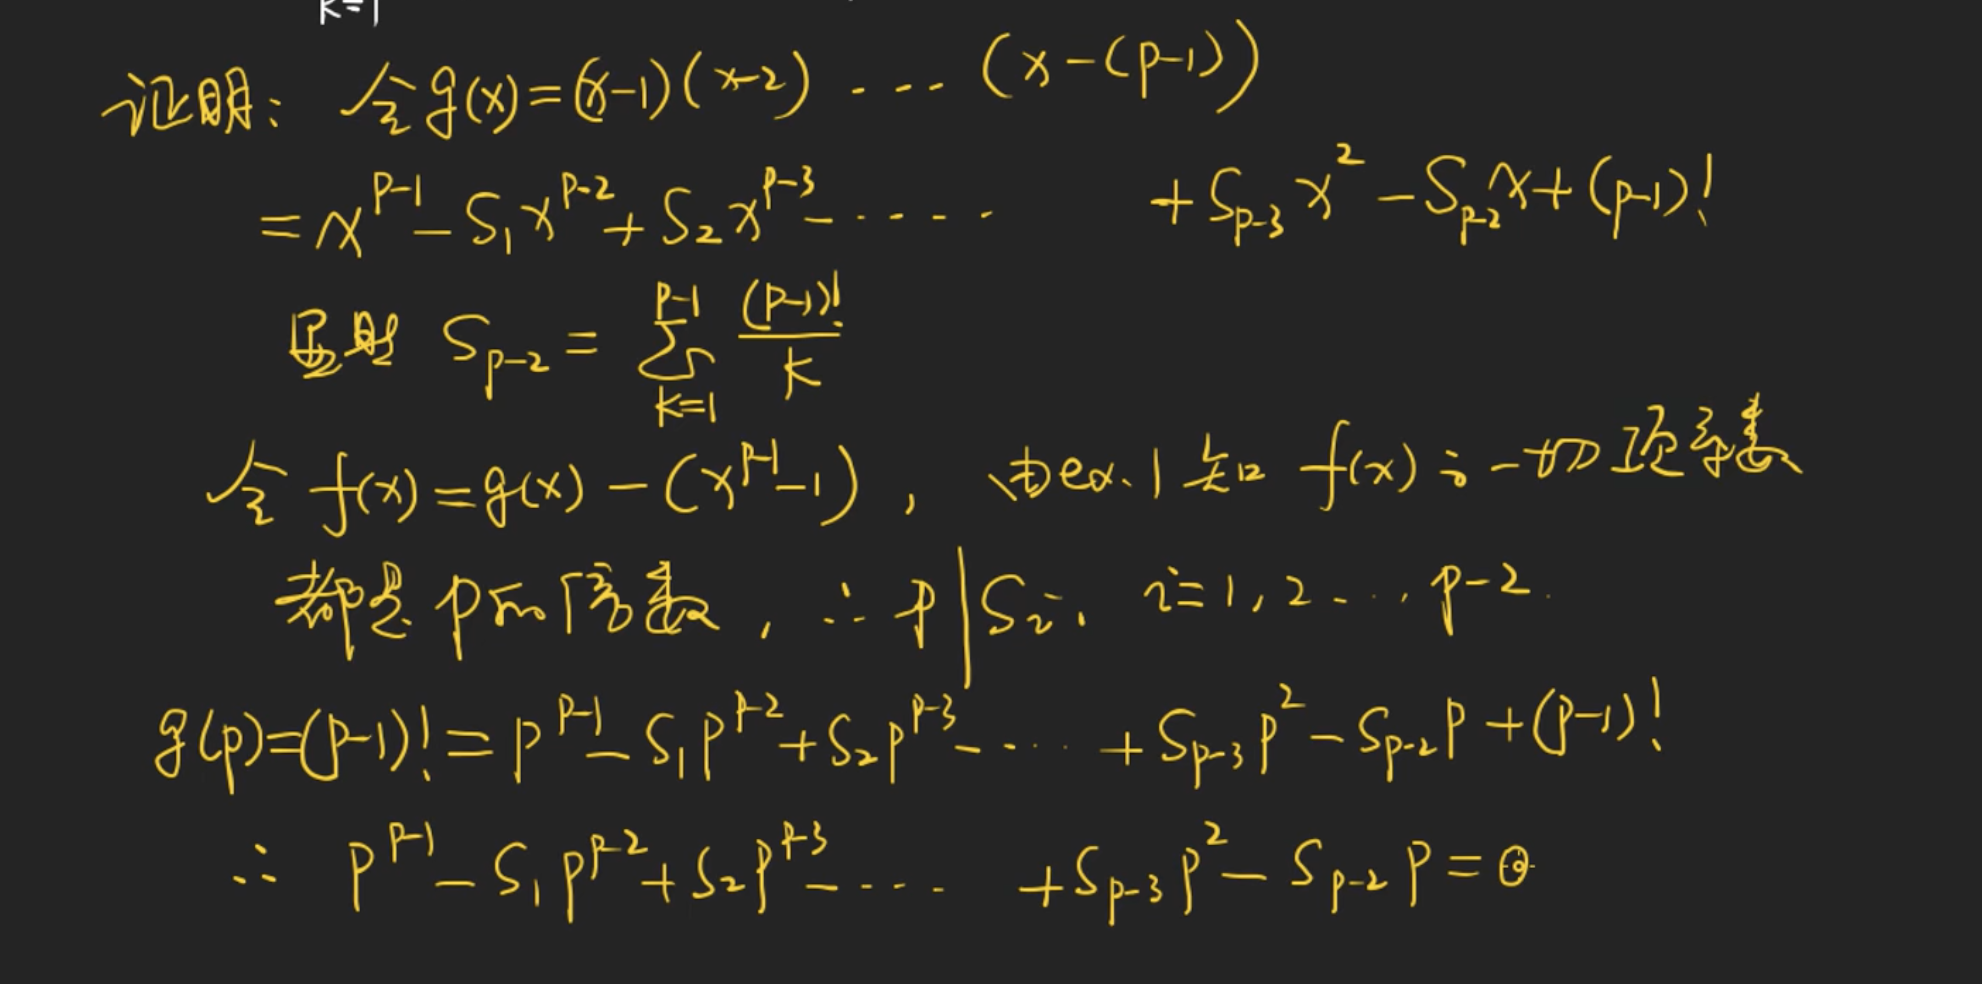 k=1
证明: 令 g(x)=(x-1)(x-2) ... (x-(p-1))
= x^{p-1} - S_1 x^{p-2} + S_2 x^{p-3} - ..... + S_{p-3} x^2 - S_{p-2} x + (p-1)!
显然 S_{p-2} = \sum_{k=1}^{p-1} \frac{(p-1)!}{k}
令 f(x) = g(x) - (x^{p-1} - 1), 由ex.1知 f(x) 的一切项系数
都是 p 的倍数, ∴ p | S_i, i=1,2..., p-2.
g(p)=(p-1)! = p^{p-1} - S_1 p^{p-2} + S_2 p^{p-3} - ..... + S_{p-3} p^2 - S_{p-2} p + (p-1)!
∴ p^{p-1} - S_1 p^{p-2} + S_2 p^{p-3} - .... + S_{p-3} p^2 - S_{p-2} p = 0